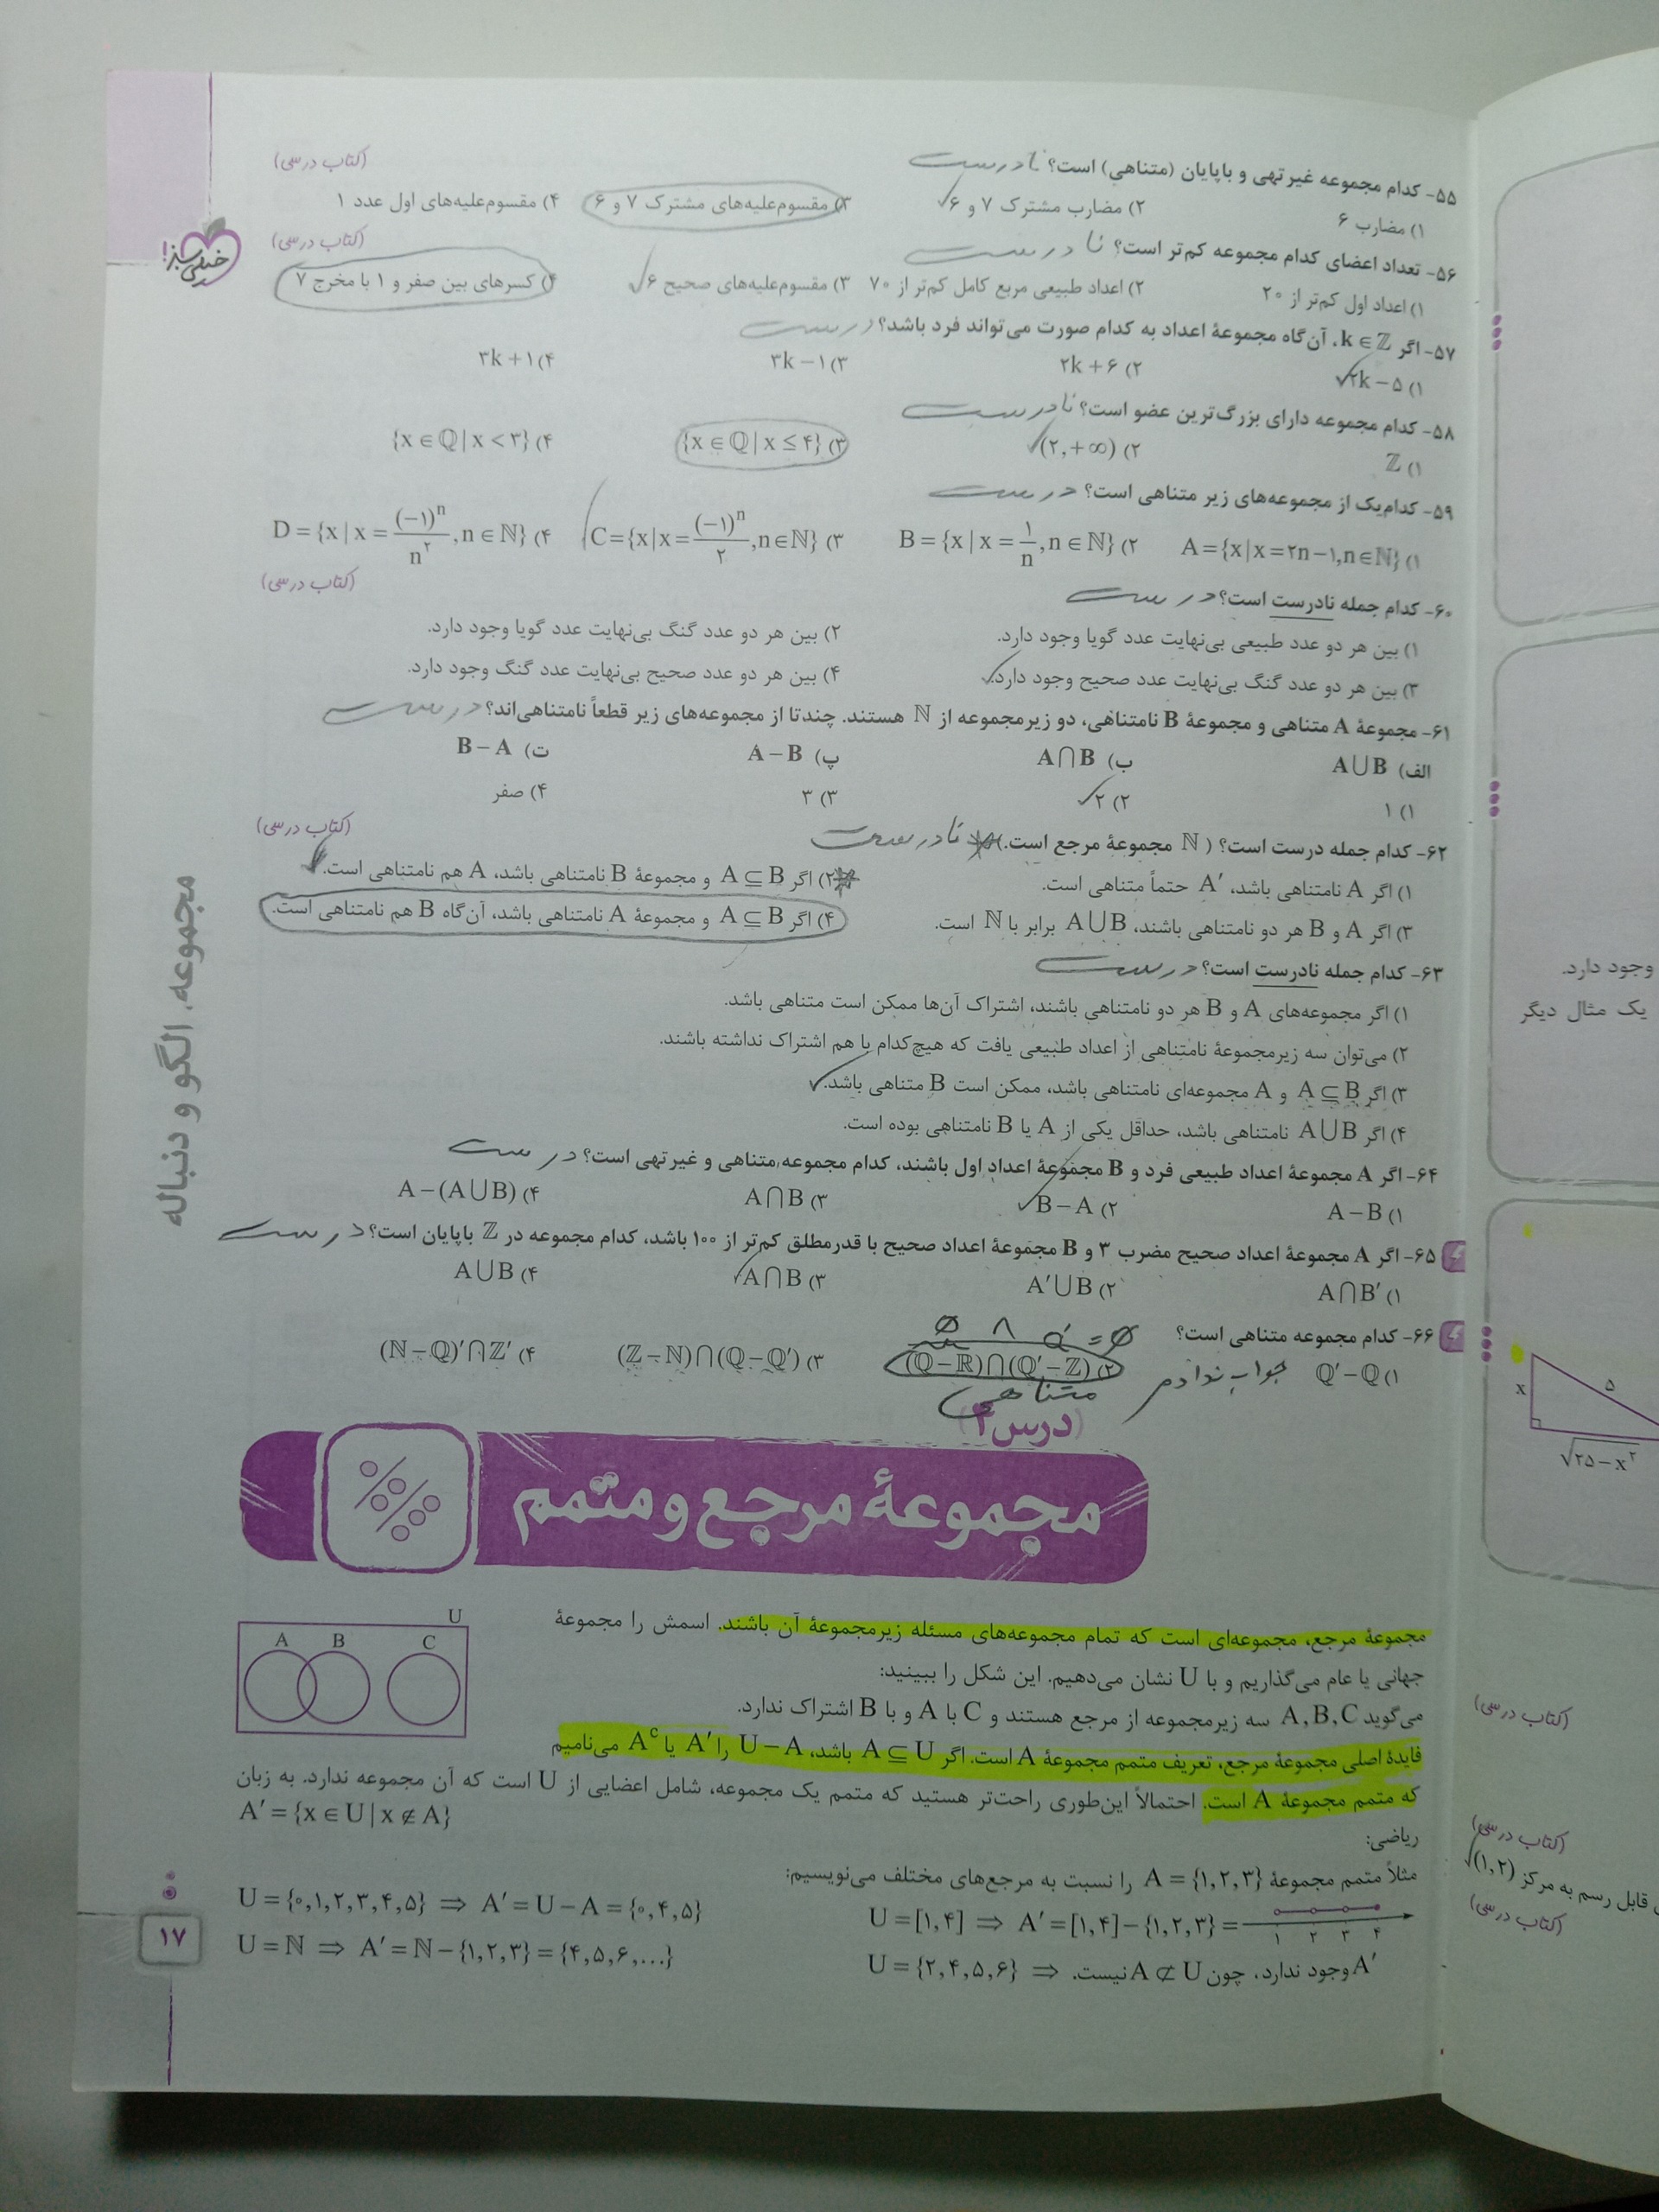 ۵۵- کدام مجموعه غیرتهی و باپایان (متناهی) است؟ نادرست
(کتاب درسی)
۱) مضارب ۶ ۲) مضارب مشترک ۷ و ۶ ۳) مقسوم‌علیه‌های مشترک ۷ و ۶ ۴) مقسوم‌علیه‌های اول عدد ۱
۵۶- تعداد اعضای کدام مجموعه کم‌تر است؟ نادرست
(کتاب درسی)
۱) اعداد اول کم‌تر از ۲۰ ۲) اعداد طبیعی مربع کامل کم‌تر از ۷۰ ۳) مقسوم‌علیه‌های صحیح ۶ ۴) کسرهای بین صفر و ۱ با مخرج ۷
۵۷- اگر k ∈ ℤ، آن‌گاه مجموعهٔ اعداد به کدام صورت می‌تواند فرد باشد؟ درست
۱) ۲k − ۵ ۲) ۲k + ۶ ۳) ۳k − ۱ ۴) ۳k + ۱
۵۸- کدام مجموعه دارای بزرگ‌ترین عضو است؟ نادرست
۱) ℤ ۲) (۲, +∞) ۳) {x ∈ ℚ | x ≤ ۴} ۴) {x ∈ ℚ | x < ۳}
۵۹- کدام‌یک از مجموعه‌های زیر متناهی است؟ درست
۱) A = {x | x = ۲n − ۱, n ∈ ℕ} ۲) B = {x | x = ۱/n, n ∈ ℕ} ۳) C = {x | x = (−۱)ⁿ/۲, n ∈ ℕ} ۴) D = {x | x = (−۱)ⁿ/n², n ∈ ℕ}
۶۰- کدام جمله نادرست است؟ درست
(کتاب درسی)
۱) بین هر دو عدد طبیعی بی‌نهایت عدد گویا وجود دارد. ۲) بین هر دو عدد گنگ بی‌نهایت عدد گویا وجود دارد.
۳) بین هر دو عدد گنگ بی‌نهایت عدد صحیح وجود دارد. ۴) بین هر دو عدد صحیح بی‌نهایت عدد گنگ وجود دارد.
۶۱- مجموعهٔ A متناهی و مجموعهٔ B نامتناهی، دو زیرمجموعه از ℕ هستند. چندتا از مجموعه‌های زیر قطعاً نامتناهی‌اند؟ درست
الف) A ∪ B ب) A ∩ B پ) A − B ت) B − A
۱) ۱ ۲) ۲ ۳) ۳ ۴) صفر
۶۲- کدام جمله درست است؟ (ℕ مجموعهٔ مرجع است.) نادرست
(کتاب درسی)
۱) اگر A نامتناهی باشد، A′ حتماً متناهی است. ۲) اگر A ⊆ B و مجموعهٔ B نامتناهی باشد، A هم نامتناهی است.
۳) اگر A و B هر دو نامتناهی باشند، A ∪ B برابر با ℕ است. ۴) اگر A ⊆ B و مجموعهٔ A نامتناهی باشد، آن‌گاه B هم نامتناهی است.
۶۳- کدام جمله نادرست است؟ درست
۱) اگر مجموعه‌های A و B هر دو نامتناهی باشند، اشتراک آن‌ها ممکن است متناهی باشد.
۲) می‌توان سه زیرمجموعهٔ نامتناهی از اعداد طبیعی یافت که هیچ‌کدام با هم اشتراک نداشته باشند.
۳) اگر A ⊆ B و A مجموعه‌ای نامتناهی باشد، ممکن است B متناهی باشد.
۴) اگر A ∪ B نامتناهی باشد، حداقل یکی از A یا B نامتناهی بوده است.
۶۴- اگر A مجموعهٔ اعداد طبیعی فرد و B مجموعهٔ اعداد اول باشند، کدام مجموعه متناهی و غیرتهی است؟ درست
۱) A − B ۲) B − A ۳) A ∩ B ۴) A − (A ∪ B)
۶۵- اگر A مجموعهٔ اعداد صحیح مضرب ۳ و B مجموعهٔ اعداد صحیح با قدرمطلق کم‌تر از ۱۰۰ باشد، کدام مجموعه در ℤ باپایان است؟ درست
۱) A ∩ B′ ۲) A′ ∪ B ۳) A ∩ B ۴) A ∪ B
۶۶- کدام مجموعه متناهی است؟
∅ ∩ Q′ = ∅
۱) ℚ′ − ℚ ۲) (ℚ − ℝ) ∩ (ℚ′ − ℤ) ۳) (ℤ − ℕ) ∩ (ℚ − ℚ′) ۴) (ℕ − ℚ)′ ∩ ℤ′
جواب ندادم
متناهی
(درس ۲)
مجموعهٔ مرجع و متمم
مجموعهٔ مرجع، مجموعه‌ای است که تمام مجموعه‌های مسئله زیرمجموعهٔ آن باشند. اسمش را مجموعهٔ
جهانی یا عام می‌گذاریم و با U نشان می‌دهیم. این شکل را ببینید:
می‌گوید A, B, C سه زیرمجموعه از مرجع هستند و C با A و با B اشتراک ندارد.
U
A B C
فایدهٔ اصلی مجموعهٔ مرجع، تعریف متمم مجموعهٔ A است. اگر A ⊆ U باشد، U − A را A′ یا Aᶜ می‌نامیم
که متمم مجموعهٔ A است. احتمالاً این‌طوری راحت‌تر هستید که متمم یک مجموعه، شامل اعضایی از U است که آن مجموعه ندارد. به زبان
ریاضی: A′ = {x ∈ U | x ∉ A}
مثلاً متمم مجموعهٔ A = {۱, ۲, ۳} را نسبت به مرجع‌های مختلف می‌نویسیم:
U = [۱, ۴] ⇒ A′ = [۱, ۴] − {۱, ۲, ۳} = ۱ ۲ ۳ ۴
U = {۰, ۱, ۲, ۳, ۴, ۵} ⇒ A′ = U − A = {۰, ۴, ۵}
A′ وجود ندارد، چون A ⊄ U نیست. ⇒ U = {۲, ۴, ۵, ۶}
U = ℕ ⇒ A′ = ℕ − {۱, ۲, ۳} = {۴, ۵, ۶, ...}
خیلی سبز!
مجموعه، الگو و دنباله
۱۷
وجود دارد.
یک مثال دیگر
x
۵
√۲۵ − x²
(کتاب درسی)
(کتاب درسی)
قابل رسم به مرکز (۱, ۲)
(کتاب درسی)